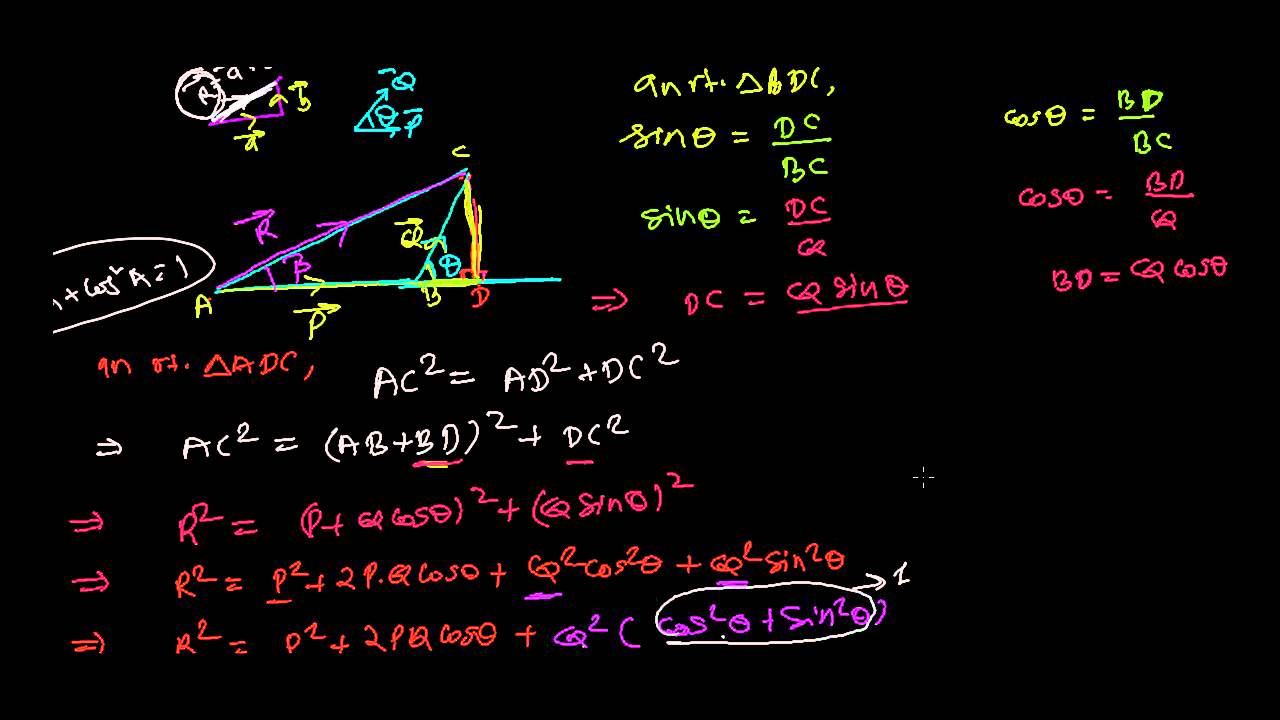 a
b
a
Q
θ
P
C
R
Q
β
θ
A
P
B
D
+ cos²A = 1
an rt. △BDC,
sinθ = DC/BC
sinθ = DC/Q
⇒ DC = Q sinθ
cosθ = BD/BC
cosθ = BD/Q
BD = Q cosθ
an rt. △ADC,
AC² = AD² + DC²
⇒ AC² = (AB+BD)² + DC²
⇒ R² = (P+QCosθ)² + (QSinθ)²
⇒ R² = P² + 2P.QCosθ + Q²Cos²θ + Q²Sin²θ
→ 1
⇒ R² = P² + 2PQCosθ + Q² (Cos²θ + Sin²θ)